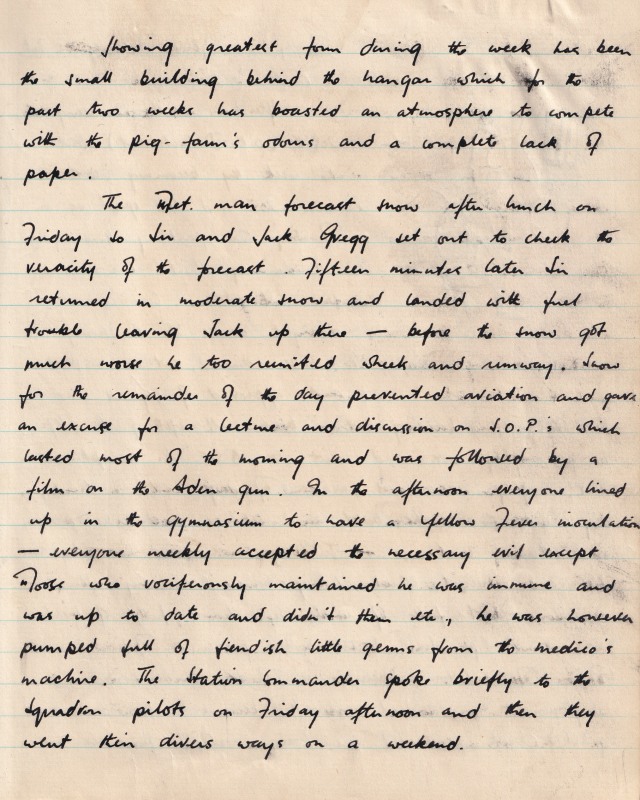 Showing greatest form during the week has been
the small building behind the hangar which for the
past two weeks has boasted an atmosphere to compete
with the pig-farm's odours and a complete lack of
paper.
The Met. man forecast snow after lunch on
Friday so Sir and Jack Gregg set out to check the
veracity of the forecast. Fifteen minutes later Sir
returned in moderate snow and landed with fuel
trouble leaving Jack up there — before the snow got
much worse he too reunited wheels and runway. Snow
for the remainder of the day prevented aviation and gave
an excuse for a lecture and discussion on S.O.P.'s which
lasted most of the morning and was followed by a
film on the Aden gun. In the afternoon everyone lined
up in the gymnasium to have a Yellow Fever inoculation
— everyone meekly accepted the necessary evil except
Moose who vociferously maintained he was immune and
was up to date and didn't them etc., he was however
pumped full of fiendish little germs from the medico's
machine. The Station Commander spoke briefly to the
Squadron pilots on Friday afternoon and then they
went their divers ways on a weekend.